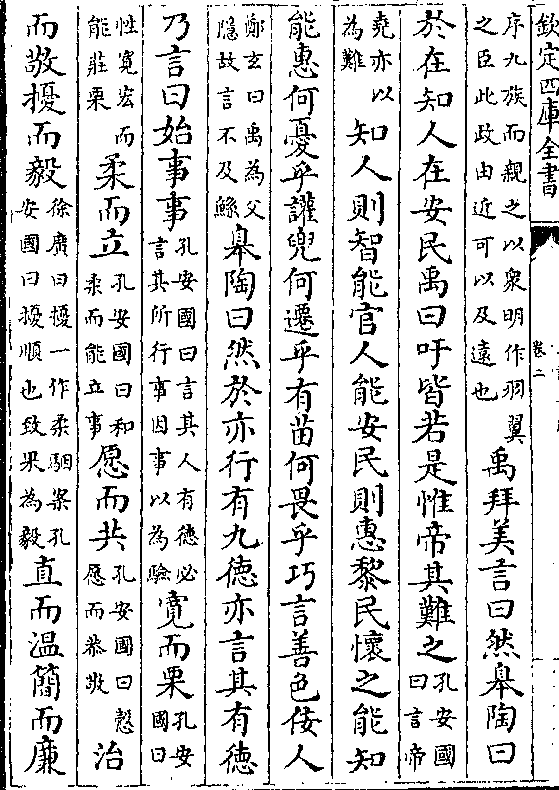 欽定四庫全書
卷二
序九族而親之以衆明作羽翼
之臣此政由近可以及遠也
禹拜美言曰然臯陶曰
於在知人在安民禹曰吁皆若是惟帝其難之
孔安國
曰言帝
堯亦以
為難
知人則智能官人能安民則惠黎民懷之能知
能惠何憂乎讙兜何遷乎有苗何畏乎巧言善色佞人
鄭玄曰禹為父
隱故言不及鯀
臯陶曰然於亦行有九德亦言其有德
乃言曰始事事
孔安國曰言其人有德必
言其所行事因事以為驗
寛而栗
孔安
國曰
性寛宏而
能莊栗
柔而立
孔安國曰和
柔而能立事
愿而共
孔安國曰慤
愿而恭敬
治
而敬擾而毅
徐廣曰擾一作柔駰案孔
安國曰擾順也致果為毅
直而温簡而廉